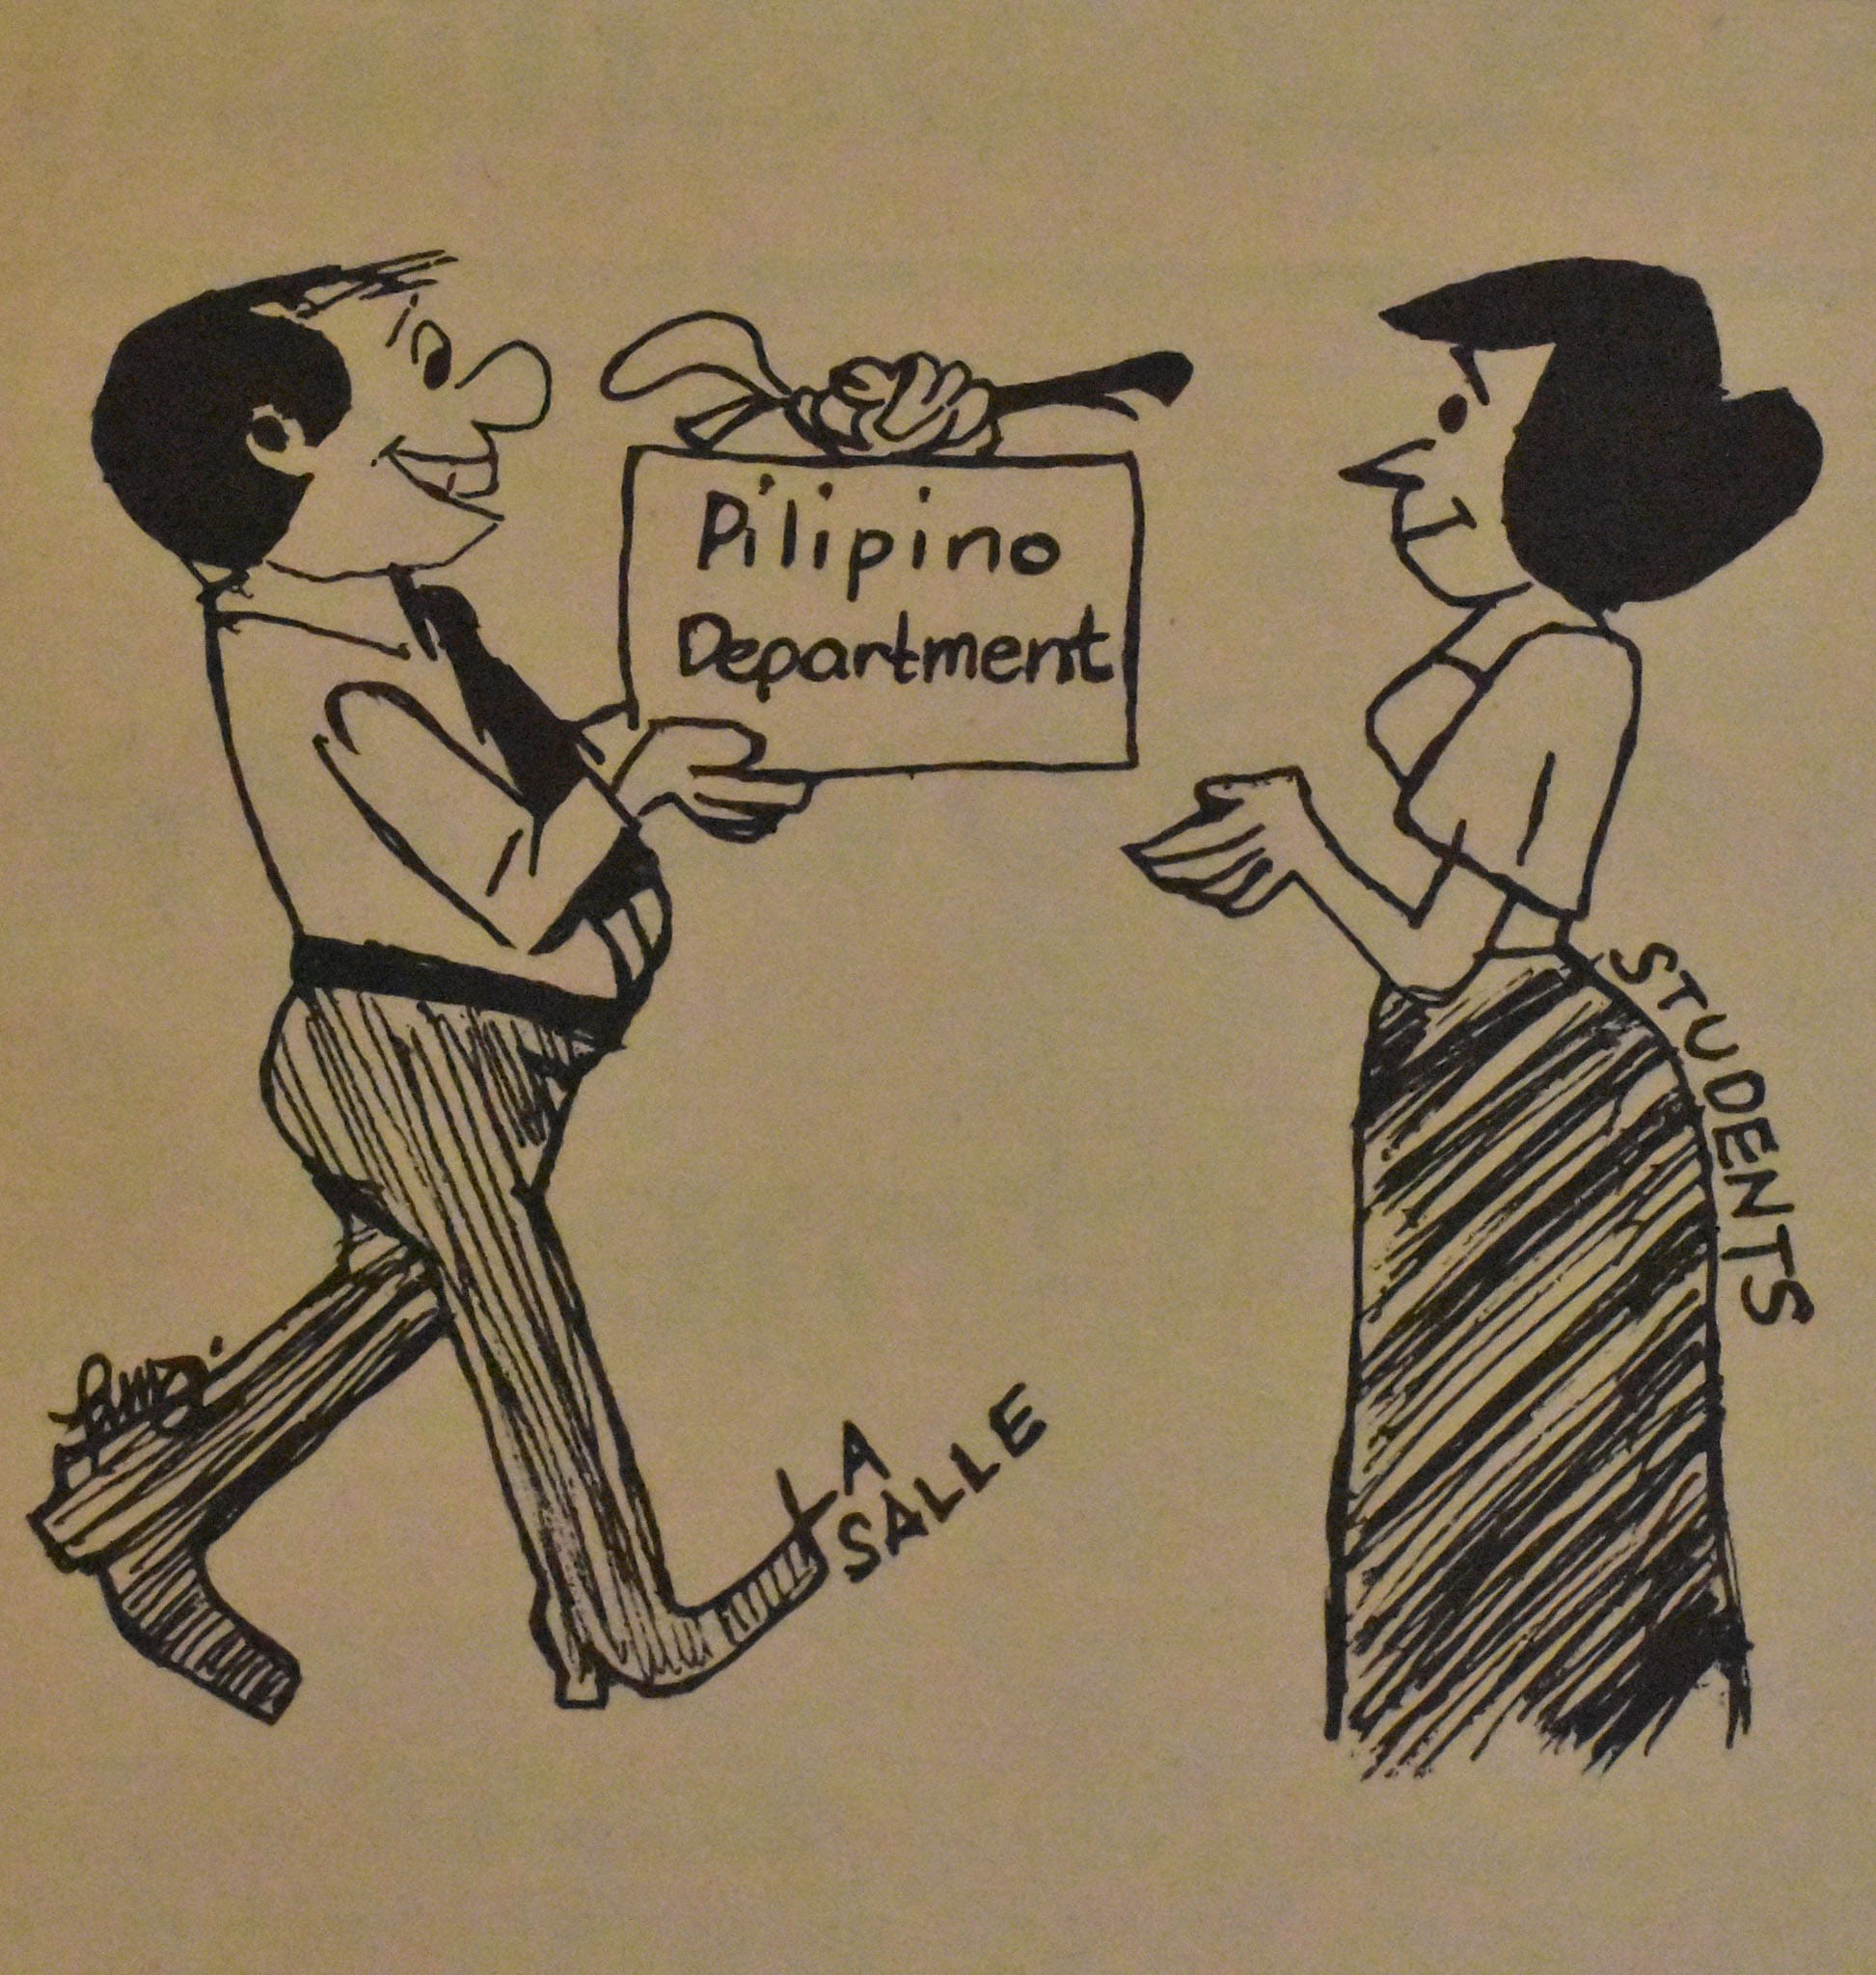 Pilipino
Department
STUDENTS
LA
SALLE